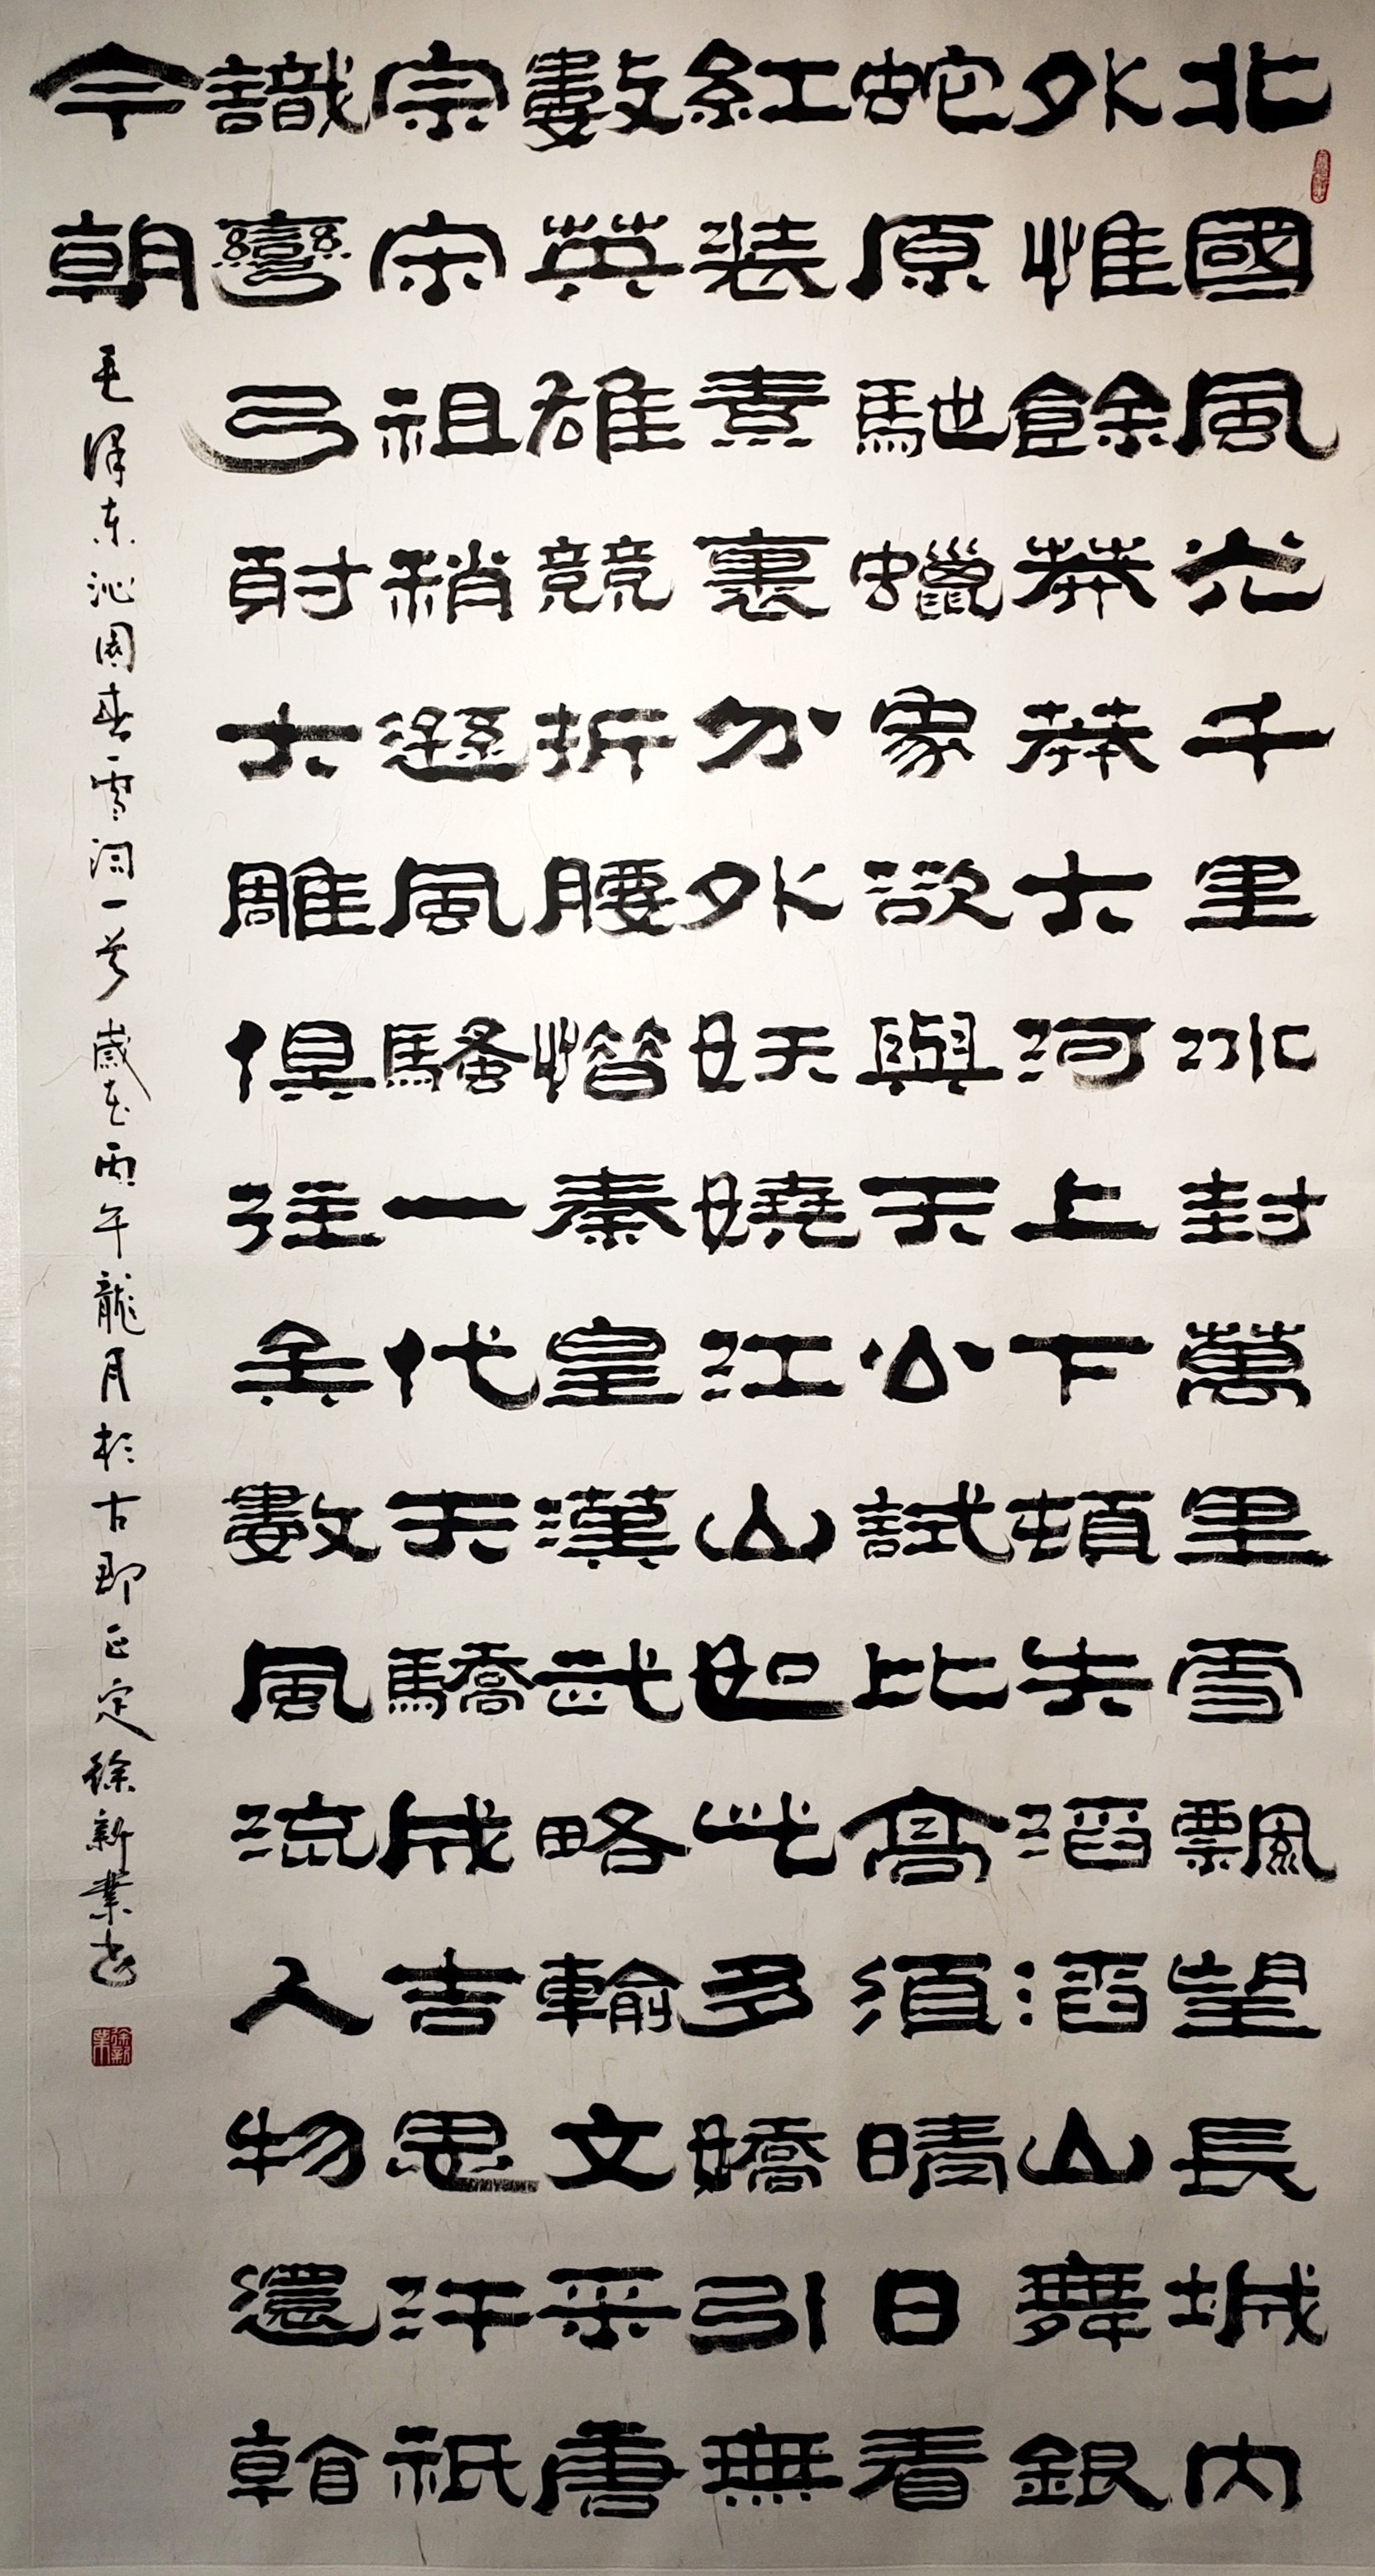 北國風光千里冰封萬里雪飄望長城內
外惟餘莽莽大河上下頓失滔滔山舞銀
蛇原馳蠟象欲與天公試比高須晴日看
紅裝素裹分外妖嬈江山如此多嬌引無
數英雄競折腰惜秦皇漢武略輸文采唐
宗宋祖稍遜風騷一代天驕成吉思汗祇
識彎弓射大雕俱往矣數風流人物還看
今朝
毛澤东沁園春雪词一首歲在丙午龍月於古郡正定徐新業书
徐新業